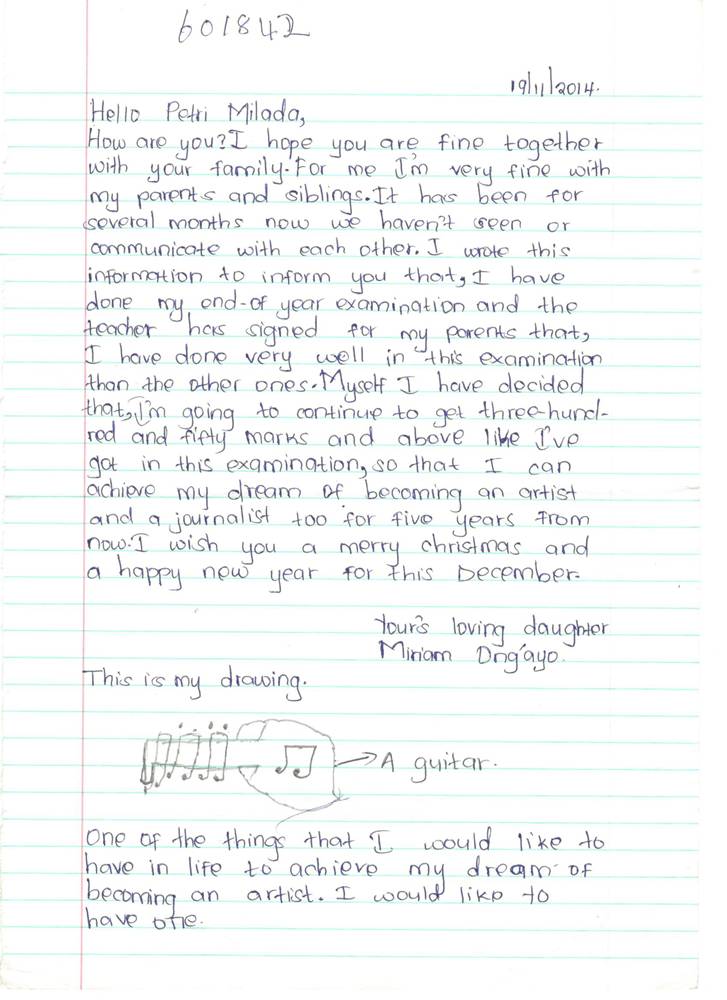 601842
19/11/2014.
Hello Petri Milada,
How are you? I hope you are fine together
with your family. For me I'm very fine with
my parents and siblings. It has been for
several months now we haven't seen or
communicate with each other. I wrote this
information to inform you that, I have
done my end-of year examination and the
teacher has signed for my parents that,
I have done very well in this examination
than the other ones. Myself I have decided
that, I'm going to continue to get three-hund-
red and fifty marks and above like I've
got in this examination, so that I can
achieve my dream of becoming an artist
and a journalist too for five years from
now. I wish you a merry christmas and
a happy new year for this December.
Your's loving daughter
Miriam Ong'ayo.
This is my drawing.
A guitar.
One of the things that I would like to
have in life to achieve my dream of
becoming an artist. I would like to
have one.